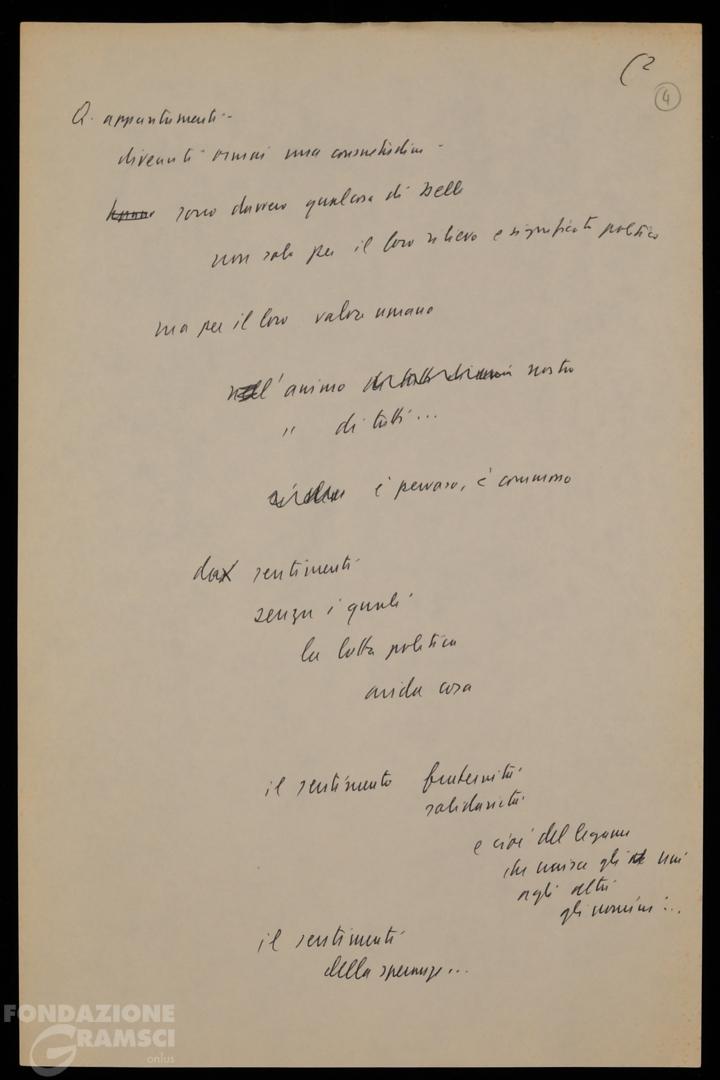 (2
4
Q. appuntamenti -
divenuti ormai una consuetudine -
sono davvero qualcosa di bello
non solo per il loro rilievo e significato politico
ma per il loro valore umano
nell'animo nostro
" di tutti ...
è pervaso, è commosso
da sentimenti
senza i quali
la lotta politica
arida cosa
il sentimento fraternità
solidarietà
e cioè del legame
che unisce gli uni
agli altri
gli uomini ...
il sentimenti
della speranza ...
FONDAZIONE
GRAMSCI
onlus